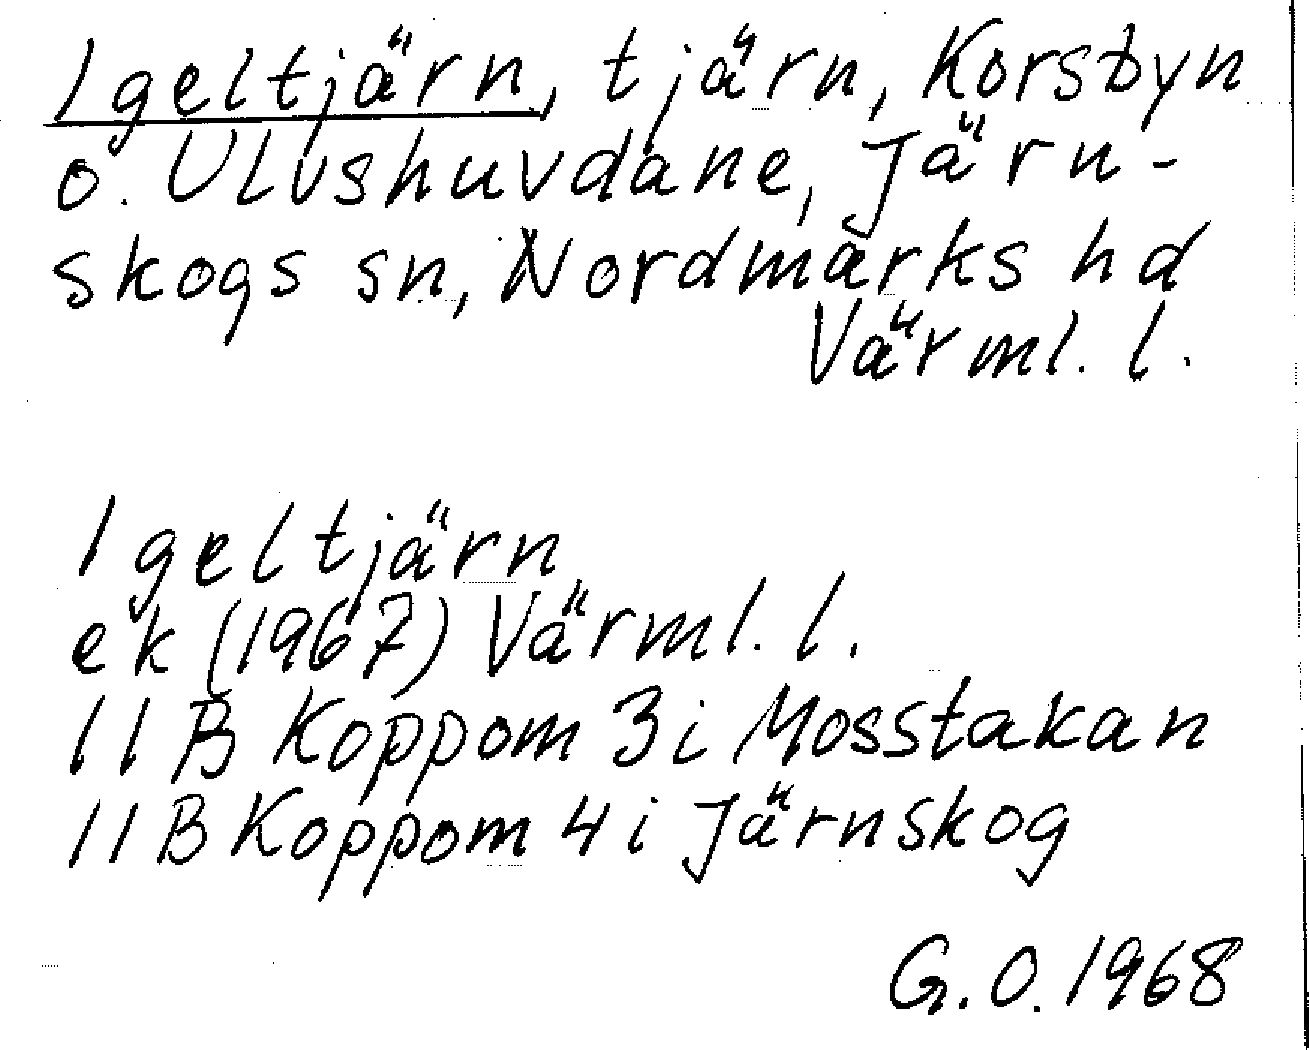 Igeltjärn, tjärn, Korsbyn
o. Ulvshuvdane, Järn-
skogs sn, Nordmarks hd
Värml. l.
Igeltjärn
ek (1967) Värml. l.
11 B Koppom 3 i Mosstakan
11 B Koppom 4 i Järnskog
G. O. 1968